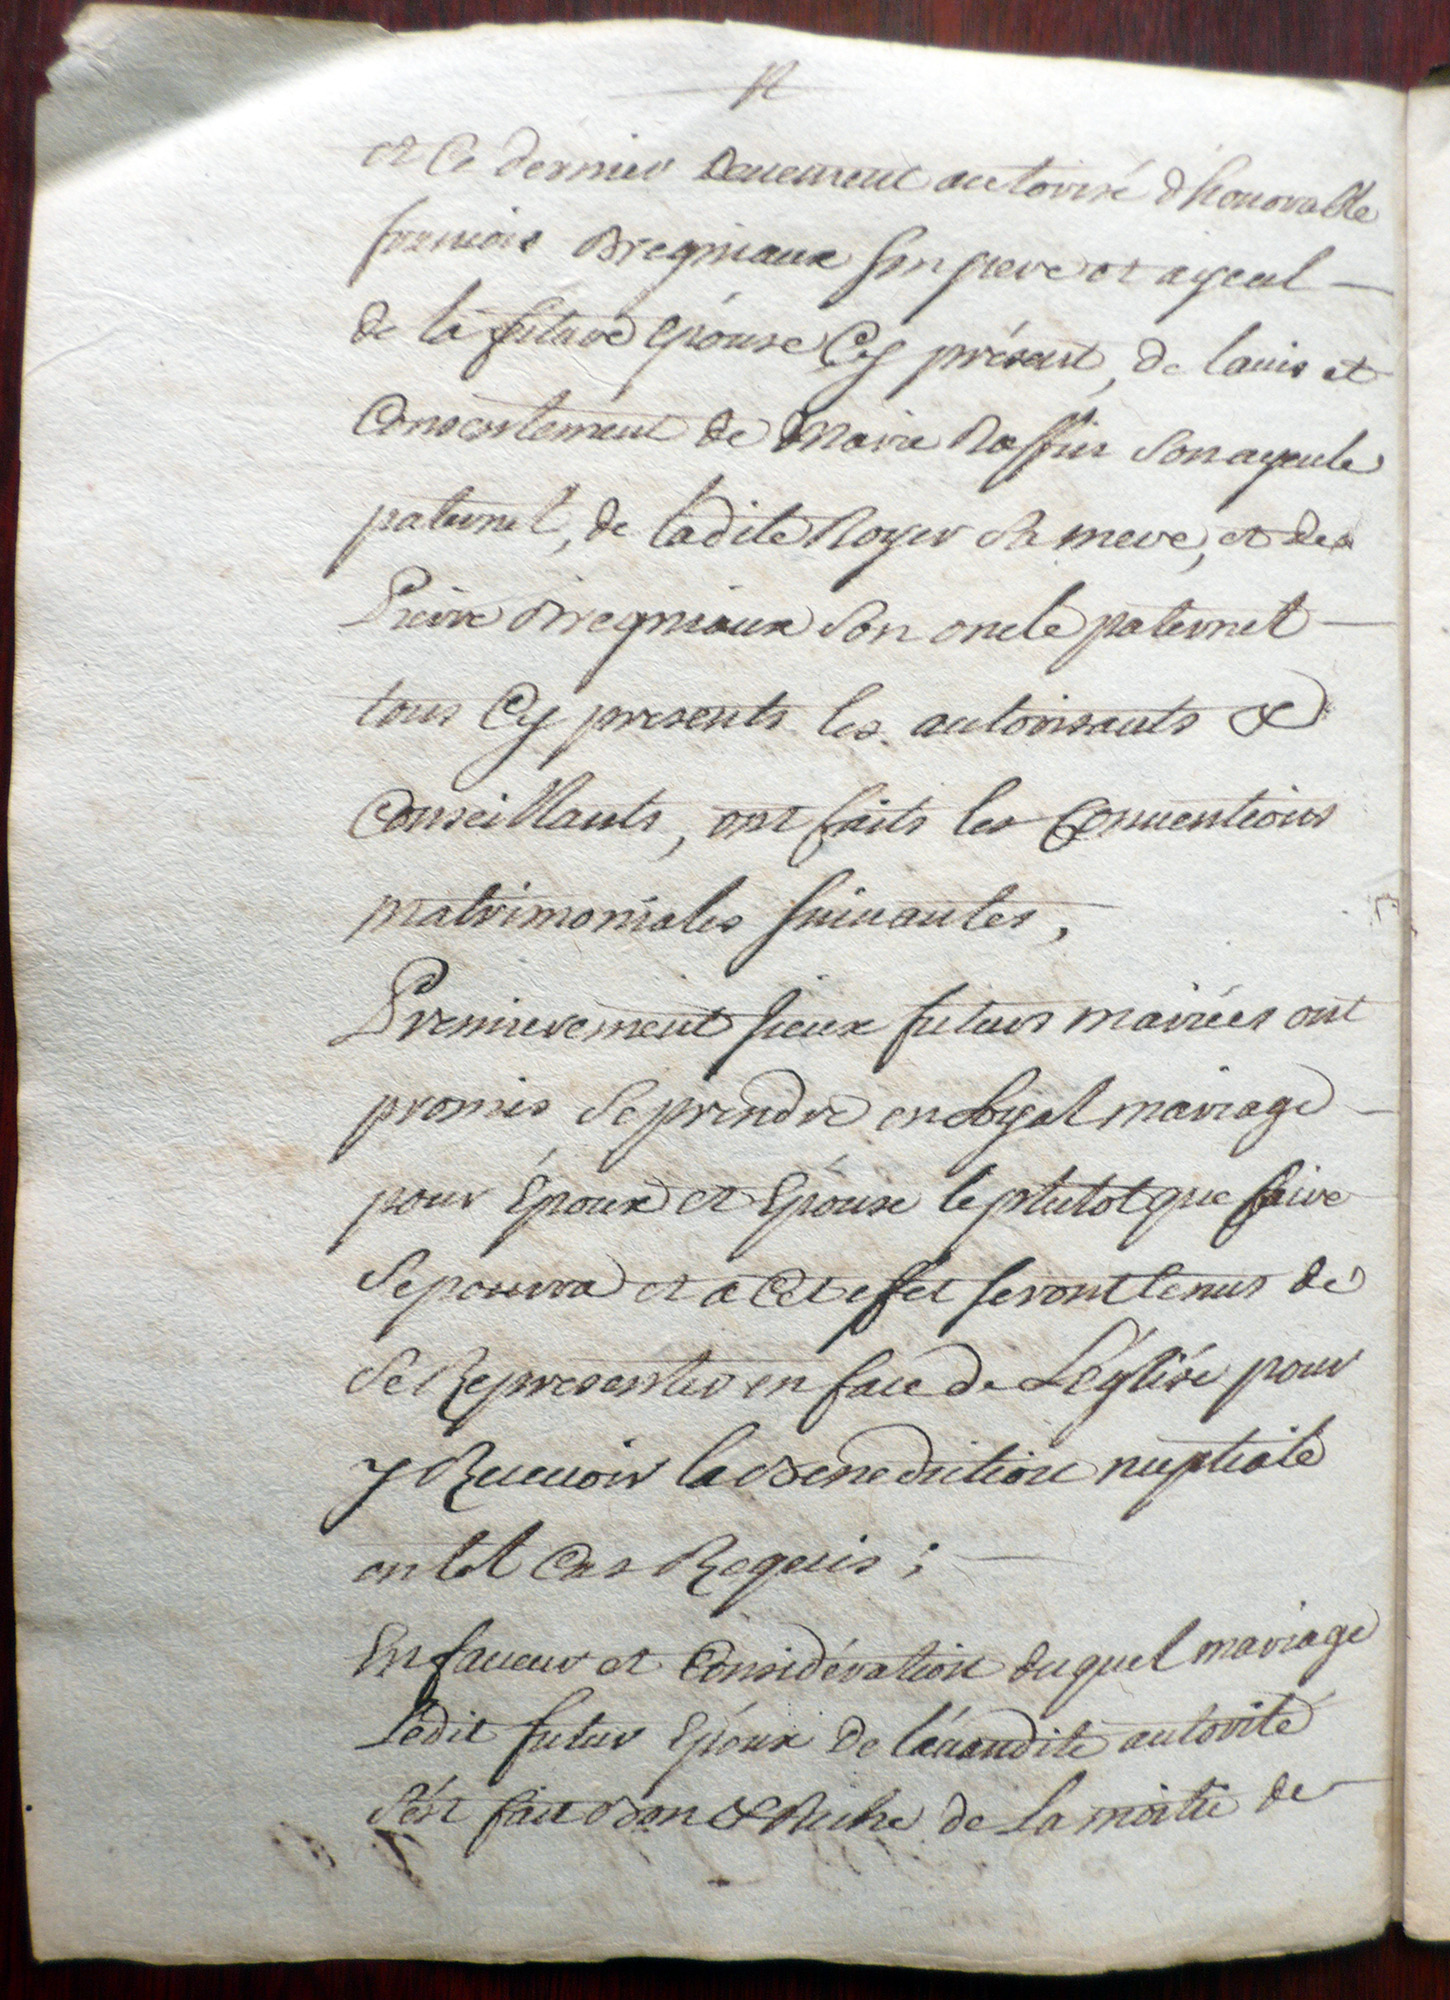 et Ce dernier Deuement auctorisé d'honorable
francois Bregniaux son pere et ayeul
de la future Epouse Cy présent, de lauis et
Consentement de Marie Raffin Son ayeule
paternel, de ladite Royer Sa mere, et de
Pierre Bregniaux Son oncle paternel
tous Cy presents les autorisants &
Conseillants, ont faits les Conuentions
matrimoniales suiuantes,
Premierement sieux futurs mairiées ont
promis Se prendre en loyal mariage
pour Epoux et Epouse le plutot que faire
Se pourra et a Cet effet seront tenus de
Se Representer en face de L'église pour
y Receuoir la Benediction nuptiale
en tel Cas Requis ;
En faueur et Considération duquel mariage
Ledit futur Epoux de l'auandite autorité
S'est fait Bon & Riche de La moitié de